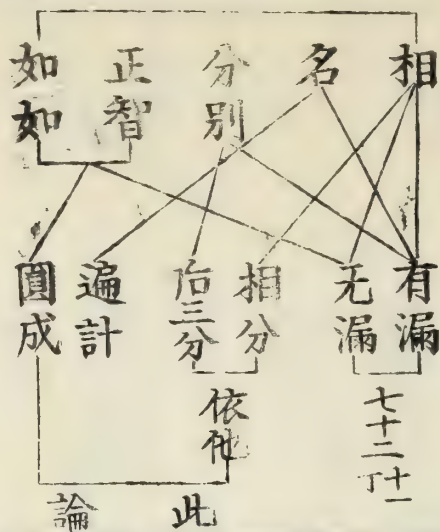 相
名
分別
正智
如如
有漏
无漏
相分
后三分
遍計
圓成
七十二
十一
丁
依他
此
論